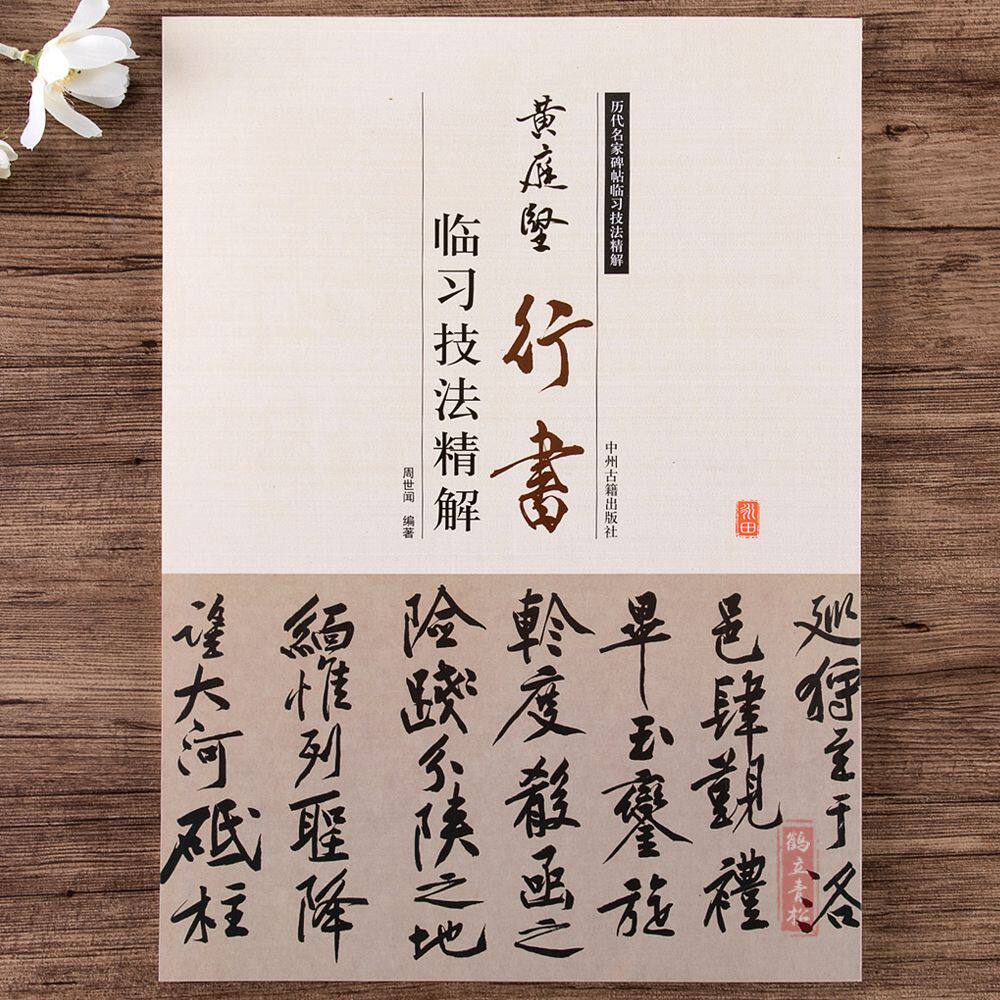 历代名家碑帖临习技法精解
中州古籍出版社
黄庭堅
行書
临习技法精解
周世闻 编著
永田
巡狩主于洛
邑肆觐禮
畢玉鑾旋
軫度殽函之
險踐分陕之地
緬惟列聖降
誰大河砥柱
鹤立青松